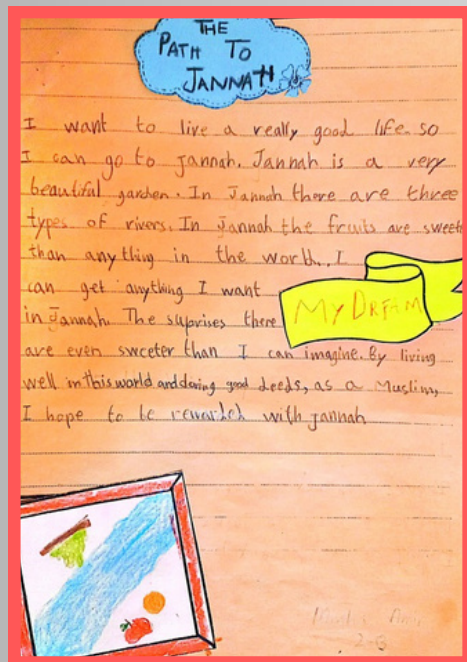 THE
PATH TO
JANNAH
I want to live a really good life. so
I can go to jannah. Jannah is a very
beautiful garden. In Jannah there are three
types of rivers. In Jannah the fruits are sweet
than anything in the world. I
can get anything I want
MY DREAM
in Jannah. The suprises there
are even sweeter than I can imagine. By living
well in this world and doring good deeds, as a Muslim,
I hope to be rewarded with jannah
2-B